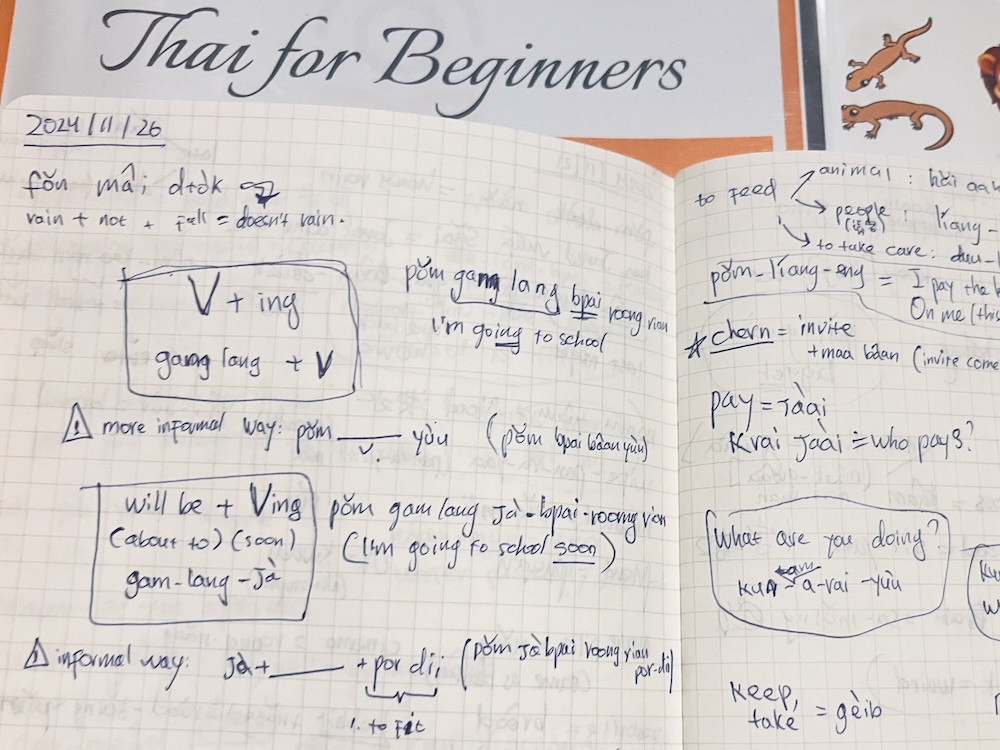 Thai for Beginners
2024/11/26
fǒn mâi dtòk
rain + not + fall = doesn't rain.
V + ing
gamg lang + V
pǒm gamg lang bpai roong rian
I'm going to school
⚠ more informal way: pǒm ____ yùu (pǒm bpai bâan yùu)
V.
will be + Ving
(about to) (soon)
gam-lang-jà
pǒm gam lang jà-bpai-roong rian
(I'm going to school soon)
⚠ informal way: jà + ____ + por dii (pǒm jà bpai roong rian por-dii)
1. to fit
to feed
animal: hâi
people: líang-
to take care: duu-
pǒm-líang-eng = I pay the
On me (this
☆ chern = invite
+ maa bâan (invite come
pay = jàai
Krai jàai = who pays?
What are you doing?
kun tam a-rai-yùu
keep,
take = gèib